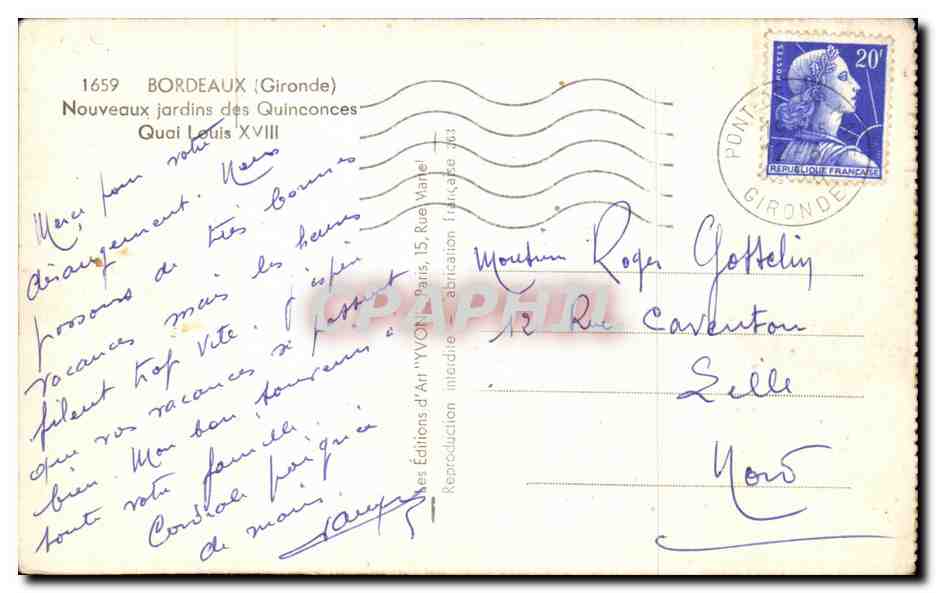 1659 BORDEAUX (Gironde)
Nouveaux jardins des Quinconces
Quai Louis XVIII
Merci pour votre
dérangement. Nous
passons de très bonnes
vacances mais les heures
filent trop vite. J'espère
que vos vacances se passent
bien. Mon bon souvenir à
toute votre famille.
Cordiale poignée
de main.
Les Editions d'Art "YVON" Paris, 15, Rue Martel
Reproduction interdite Fabrication française
CPAPHIL
POSTES
20F
REPUBLIQUE FRANÇAISE
PONT
GIRONDE
Monsieur Roger Gosselin
12 Rue Caventou
Lille
Nord